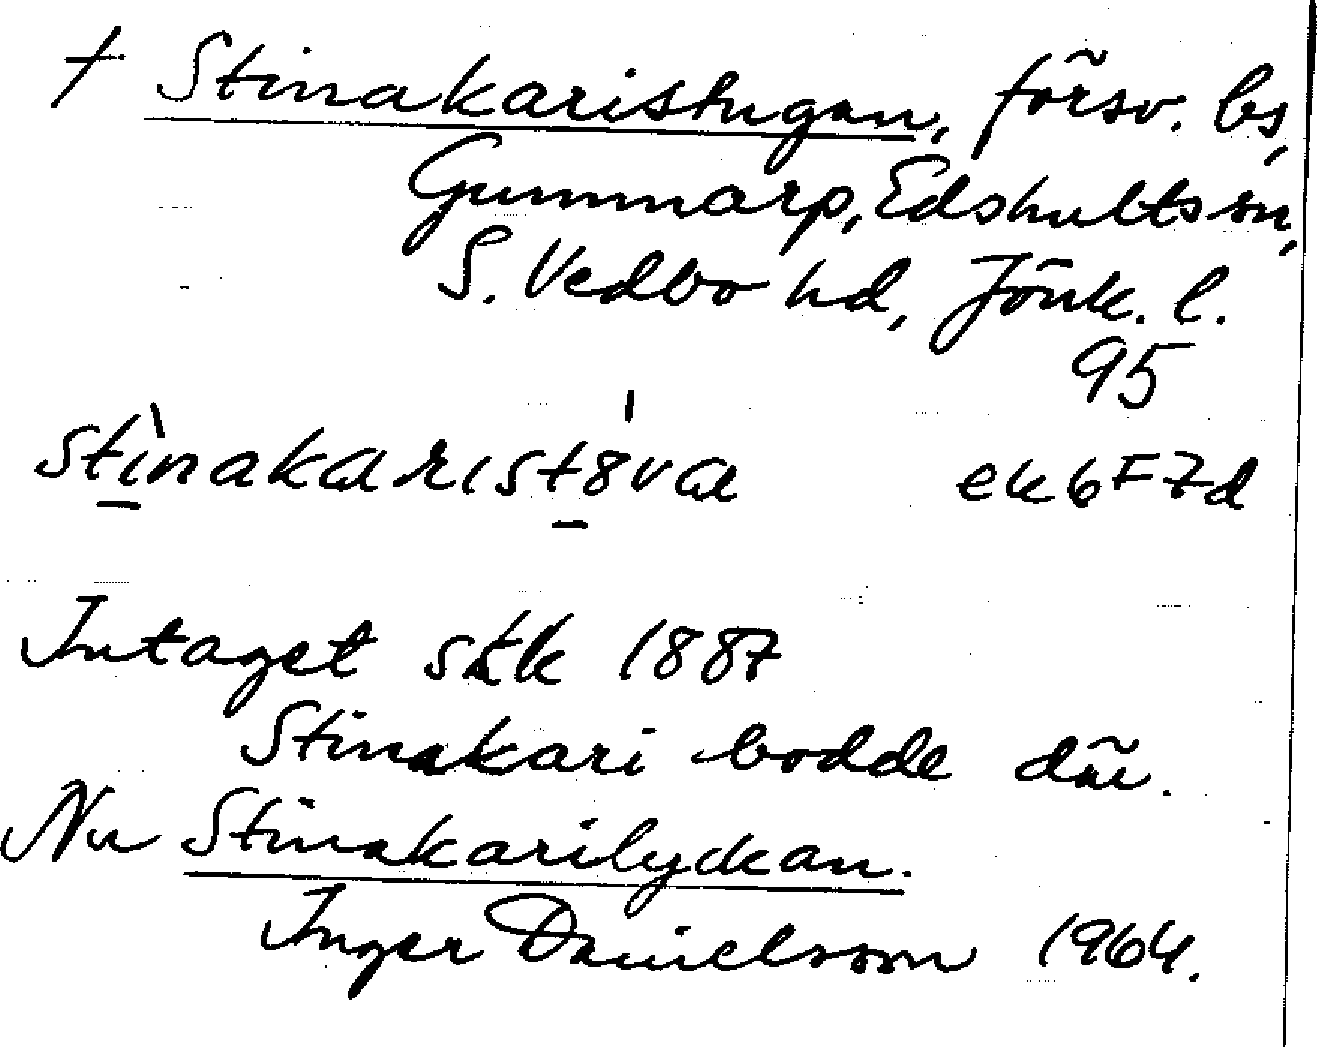 † Stinakaristugan, försv. bs,
Gummarp, Edshults sn,
S. Vedbo hd, Jönk. l.
95
stìnakaristȣva ek 6 F 7d
Intaget skk 1887
Stinakari bodde där.
Nu Stinakarilyckan.
Inger Danielsson 1964.